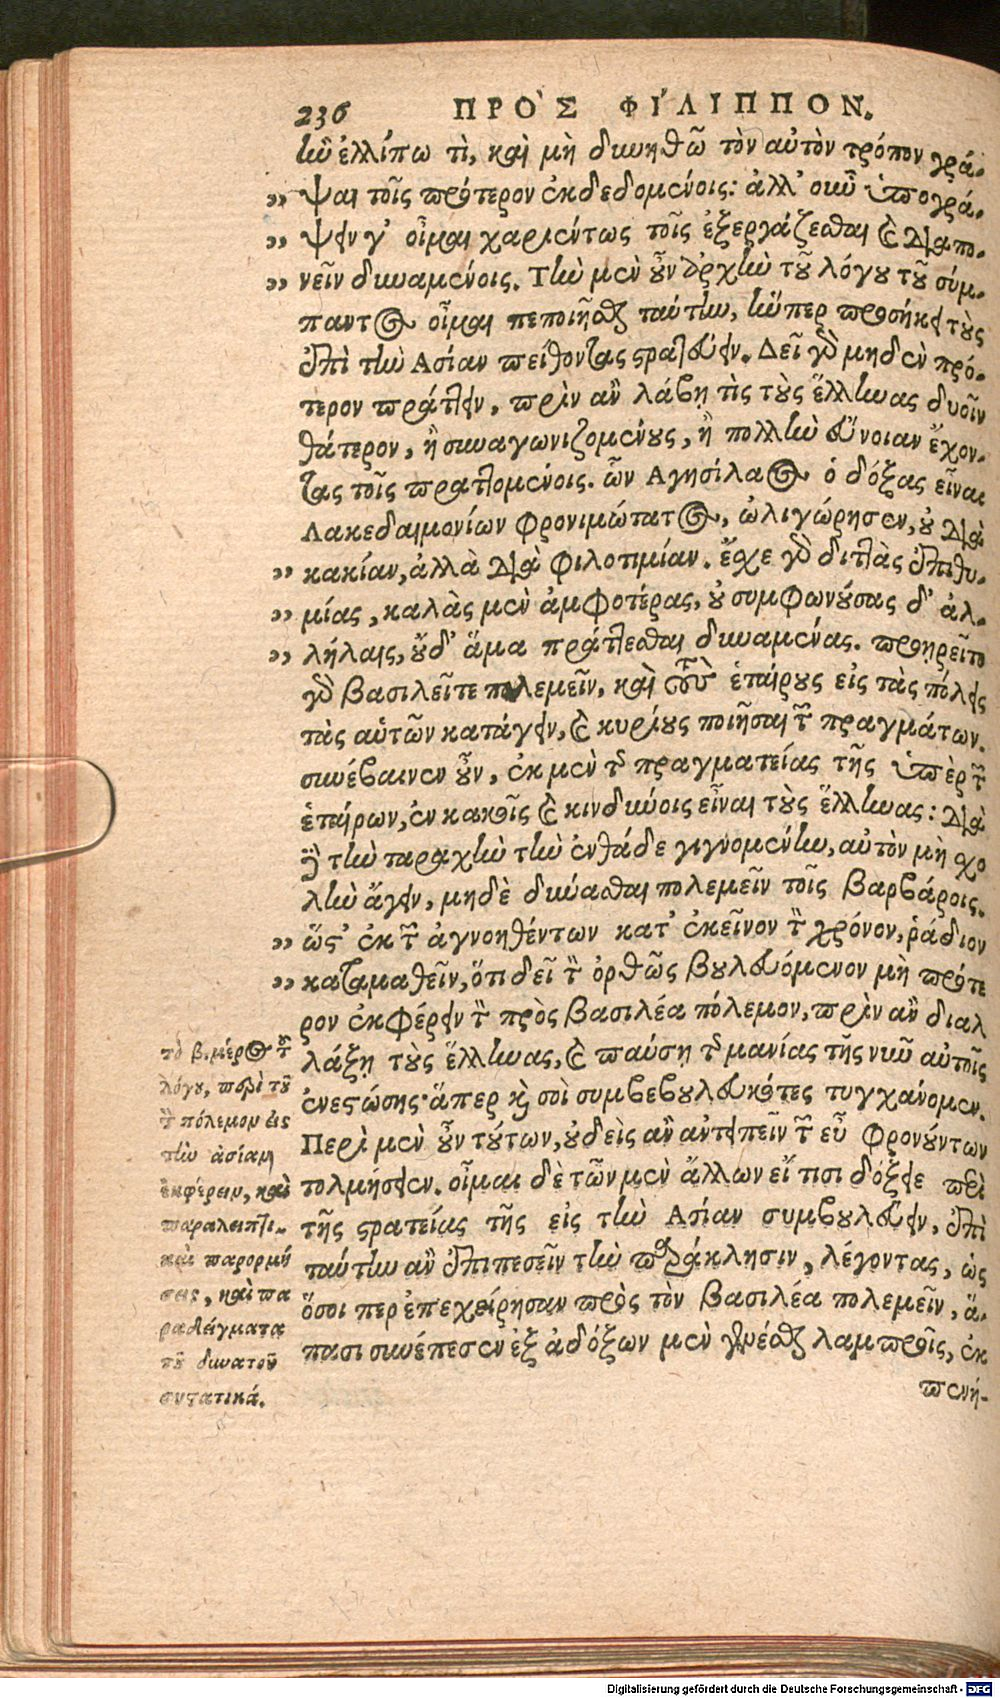 236 ΠΡΟ῀Σ ΦΙ΄ΛΙΠΠΟΝ.
ἢν ἐλλίπω τὶ, καὶ μὴ δυνηθῶ τὸν αὐτὸν τρόπον γρά-
„ ψαι τοῖς πρότερον ἐκδεδομένοις: ἀλλ' οὖν ὑπογρά-
„ ψειν γ' οἶμαι χαριέντως τοῖς ἐξεργάζεσθαι καὶ διαπο-
„ νεῖν δυναμένοις. Τὴν μὲν οὖν ἀρχὴν τοῦ λόγου τοῦ σύμ-
παντος οἶμαι πεποιῆσθαι ταύτην, ἥνπερ προσήκει τοὺς
ἐπὶ τὴν Ασίαν πείθοντας στρατεύειν. Δεῖ γὰρ μηδὲν πρό-
τερον πράττειν, πρὶν ἂν λάβῃ τὶς τοὺς ἕλληνας δυοῖν
θάτερον, ἢ συναγωνιζομένους, ἢ πολλὴν εὔνοιαν ἔχον-
τας τοῖς πραττομένοις. ὧν Αγησίλαος ὁ δόξας εἶναι
Λακεδαιμονίων φρονιμώτατος, ὠλιγώρησεν, οὐ διὰ
„ κακίαν, ἀλλὰ διὰ φιλοτιμίαν. ἔσχε γὰρ διττὰς ἐπιθυ-
„ μίας, καλὰς μὲν ἀμφοτέρας, οὐ συμφωνούσας δ' ἀλ-
„ λήλαις, οὐδ' ἅμα πράττεσθαι δυναμένας. προῃρεῖτο
γὰρ βασιλεῖ τε πολεμεῖν, καὶ τοὺς ἑταίρους εἰς τὰς πόλεις
τὰς αὑτῶν κατάγειν, καὶ κυρίους ποιῆσαι τῶν πραγμάτων.
συνέβαινεν οὖν, ἐκ μὲν τῆς πραγματείας τῆς ὑπὲρ τῶν
ἑταίρων, ἐν κακοῖς καὶ κινδύνοις εἶναι τοὺς ἕλληνας: διὰ
δὲ τὴν ταραχὴν τὴν ἐνθάδε γιγνομένην, αὐτὸν μὴ σχο
λὴν ἄγειν, μηδὲ δύνασθαι πολεμεῖν τοῖς βαρβάροις.
„ ὥστ' ἐκ τῶν ἀγνοηθέντων κατ' ἐκεῖνον τὸν χρόνον, ῥάδιον
„ καταμαθεῖν, ὅτι δεῖ τὸν ὀρθῶς βουλευόμενον μὴ πρότε
ρον ἐκφέρειν τὸν πρὸς βασιλέα πόλεμον, πρὶν ἂν διαλ
λάξῃ τοὺς ἕλληνας, καὶ παύσῃ τῆς μανίας τῆς νῦν αὐτοῖς
ἐνεστώσης· ἅπερ καὶ σοὶ συμβεβουλευκότες τυγχάνομεν.
Περὶ μὲν οὖν τούτων, οὐδεὶς ἂν ἀντειπεῖν τῶν εὖ φρονούντων
τολμήσειεν. οἶμαι δὲ τῶν μὲν ἄλλων εἴ τισι δόξειε περὶ
τῆς στρατείας τῆς εἰς τὴν Ασίαν συμβουλεύειν, ἐπὶ
ταύτην ἂν ἐπιπεσεῖν τὴν παράκλησιν, λέγοντας, ὡς
ὅσοι περ ἐπεχείρησαν πρὸς τὸν βασιλέα πολεμεῖν, ἅ-
πασι συνέπεσεν ἐξ ἀδόξων μὲν γενέσθαι λαμπροῖς, ἐκ
πενή-
τὸ β. μέρος τοῦ
λόγου, περὶ τοῦ
τὸν πόλεμον εἰς
τὴν ἀσίαν
ἐκφέρειν, καὶ
παραλειπτι-
καὶ παρορμή
σεις, καὶ πα
ραδείγματα
τοῦ δυνατοῦ
συστατικά.
Digitalisierung gefördert durch die Deutsche Forschungsgemeinschaft - DFG